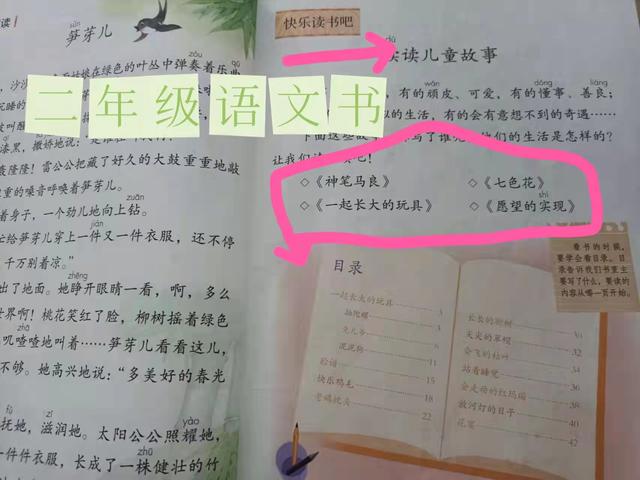 读
sǔn
笋芽儿
在绿色的叶丛中弹奏着乐
沙沙
二年级语文书
撒娇地说：
轰隆隆！雷公公把藏了好久的大鼓重重地敲
重的嗓音呼唤着笋芽儿。
着身子，一个劲儿地向上钻。
给笋芽儿穿上一件又一件衣服，还不停
千万别着凉。”
zhēng
出了地面。她睁开眼睛一看，啊，多么
世界啊！桃花笑红了脸，柳树摇着绿色
叽喳喳地叫着……笋芽儿看看这儿，
她高兴地说：“多美好的春光
fǔ zī yào
抚她，滋润她。太阳公公照耀她，
件件衣服，长成了一株健壮的竹
快乐读书吧
dú
读读儿童故事
wán dǒng liáng
有的顽皮、可爱，有的懂事、善良；
的生活，有的会有意想不到的奇遇……
他们的生活是怎样的？
让我们
◇《神笔马良》
◇《七色花》
shí
◇《一起长大的玩具》
◇《愿望的实现》
看书的时候，
要学会看目录。目
录告诉我们书里主
要写了什么，要读的
内容从哪一页开始。
目录
一起长大的玩具 3
抽陀螺 3
兔儿爷 6
泥泥狗 11
脸谱 15
快乐鸡毛 18
22
长长的柳树 30
尖尖的草帽 32
会飞的秸叶 34
站着睡觉 36
会走动的红玛瑙 38
放河灯的日子 40
花里 42